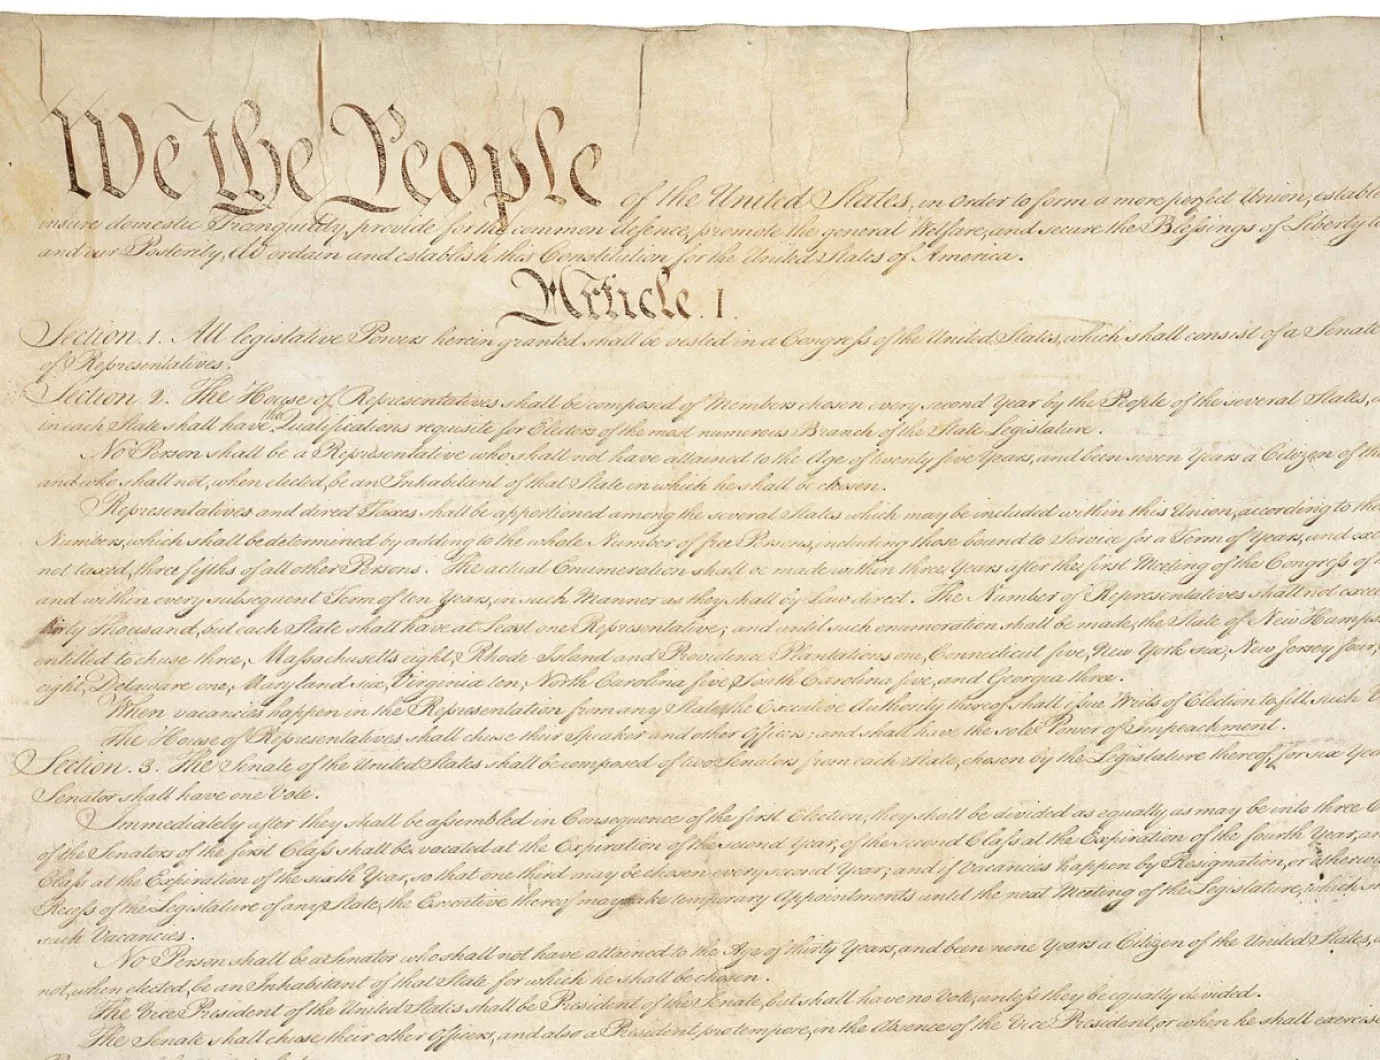 We the People of the United States, in Order to form a more perfect Union, establ
insure domestic Tranquility, provide for the common defence, promote the general Welfare, and secure the Blessings of Liberty to
and our Posterity, do ordain and establish this Constitution for the United States of America.
Article. I.
Section. 1. All legislative Powers herein granted shall be vested in a Congress of the United States, which shall consist of a Senate
of Representatives.
Section. 2. The House of Representatives shall be composed of Members chosen every second Year by the People of the several States,
in each State shall have the Qualifications requisite for Electors of the most numerous Branch of the State Legislature.
No Person shall be a Representative who shall not have attained to the Age of twenty five Years, and been seven Years a Citizen of the
and who shall not, when elected, be an Inhabitant of that State in which he shall be chosen.
Representatives and direct Taxes shall be apportioned among the several States which may be included within this Union, according to the
Numbers, which shall be determined by adding to the whole Number of free Persons, including those bound to Service for a Term of Years, and exc
not taxed, three fifths of all other Persons. The actual Enumeration shall be made within three Years after the first Meeting of the Congress of
and within every subsequent Term of ten Years, in such Manner as they shall by Law direct. The Number of Representatives shall not excee
thirty Thousand, but each State shall have at Least one Representative; and until such enumeration shall be made, the State of New Hamps
entitled to chuse three, Massachusetts eight, Rhode-Island and Providence Plantations one, Connecticut five, New-York six, New Jersey four,
eight, Delaware one, Maryland six, Virginia ten, North Carolina five, South Carolina five, and Georgia three.
When vacancies happen in the Representation from any State, the Executive Authority thereof shall issue Writs of Election to fill such
The House of Representatives shall chuse their Speaker and other Officers; and shall have the sole Power of Impeachment.
Section. 3. The Senate of the United States shall be composed of two Senators from each State, chosen by the Legislature thereof, for six Yea
Senator shall have one Vote.
Immediately after they shall be assembled in Consequence of the first Election, they shall be divided as equally as may be into three
of the Senators of the first Class shall be vacated at the Expiration of the second Year, of the second Class at the Expiration of the fourth Year, an
Class at the Expiration of the sixth Year, so that one third may be chosen every second Year; and if Vacancies happen by Resignation, or otherwi
Recess of the Legislature of any State, the Executive thereof may make temporary Appointments until the next Meeting of the Legislature, which s
such Vacancies.
No Person shall be a Senator who shall not have attained to the Age of thirty Years, and been nine Years a Citizen of the United States,
not, when elected, be an Inhabitant of that State for which he shall be chosen.
The Vice President of the United States shall be President of the Senate, but shall have no Vote, unless they be equally divided.
The Senate shall chuse their other Officers, and also a President pro tempore, in the Absence of the Vice President, or when he shall exercise